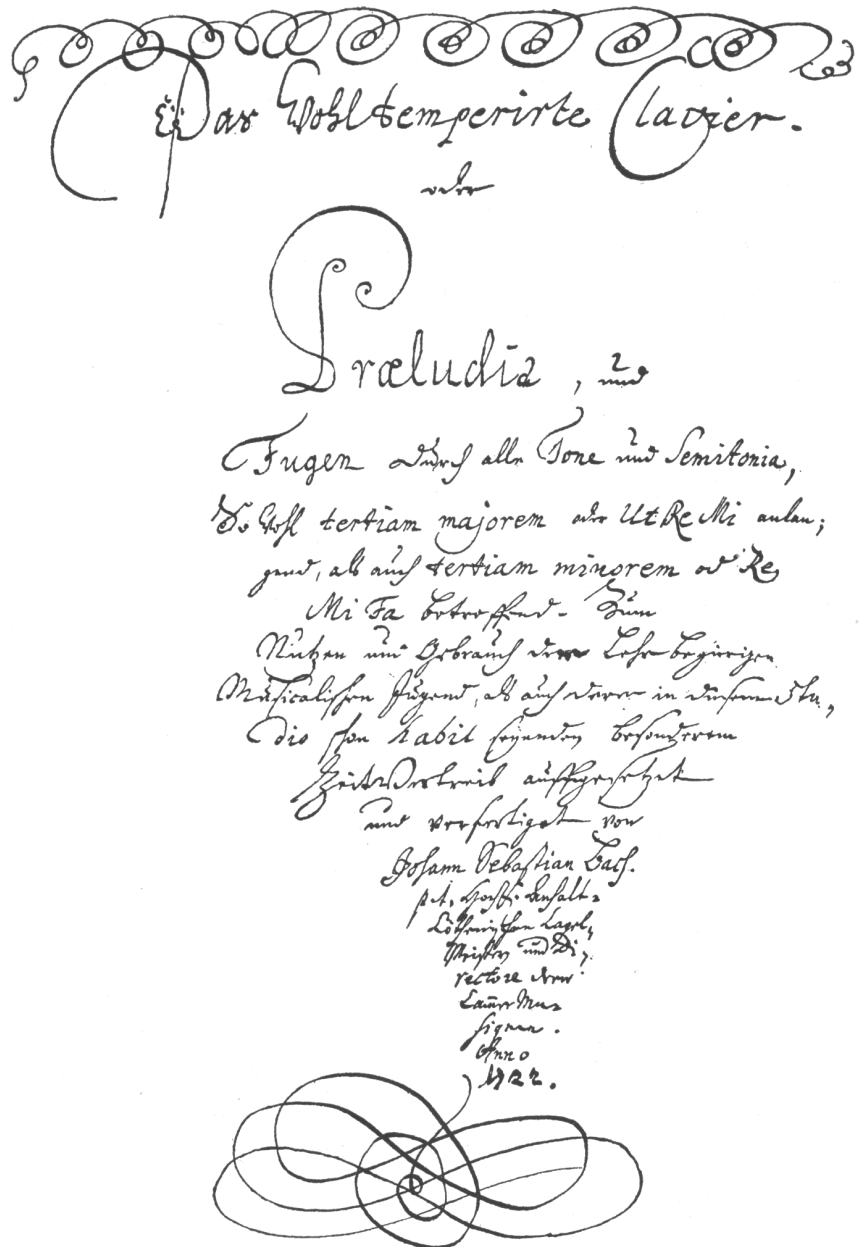 Das Wohltemperirte Clavier.
oder
Præludia, und
Fugen durch alle Tone und Semitonia,
So wohl tertiam majorem oder Ut Re Mi anlan;
gend, als auch tertiam minorem od Re
Mi Fa betreffend. Zum
Nutzen und Gebrauch der Lehrbegierigen
Musicalischen Jugend, als auch derer in diesem Stu,
dio schon habil seyenden besonderem
ZeitVertreib auffgesetzet
und verfertiget von
Johann Sebastian Bach.
p.t. Hochf. Anhalt-
Cöthenischen Capel,
Meister und Di,
rectore derer
Cam̅er Mu-
siquen.
Anno
1722.